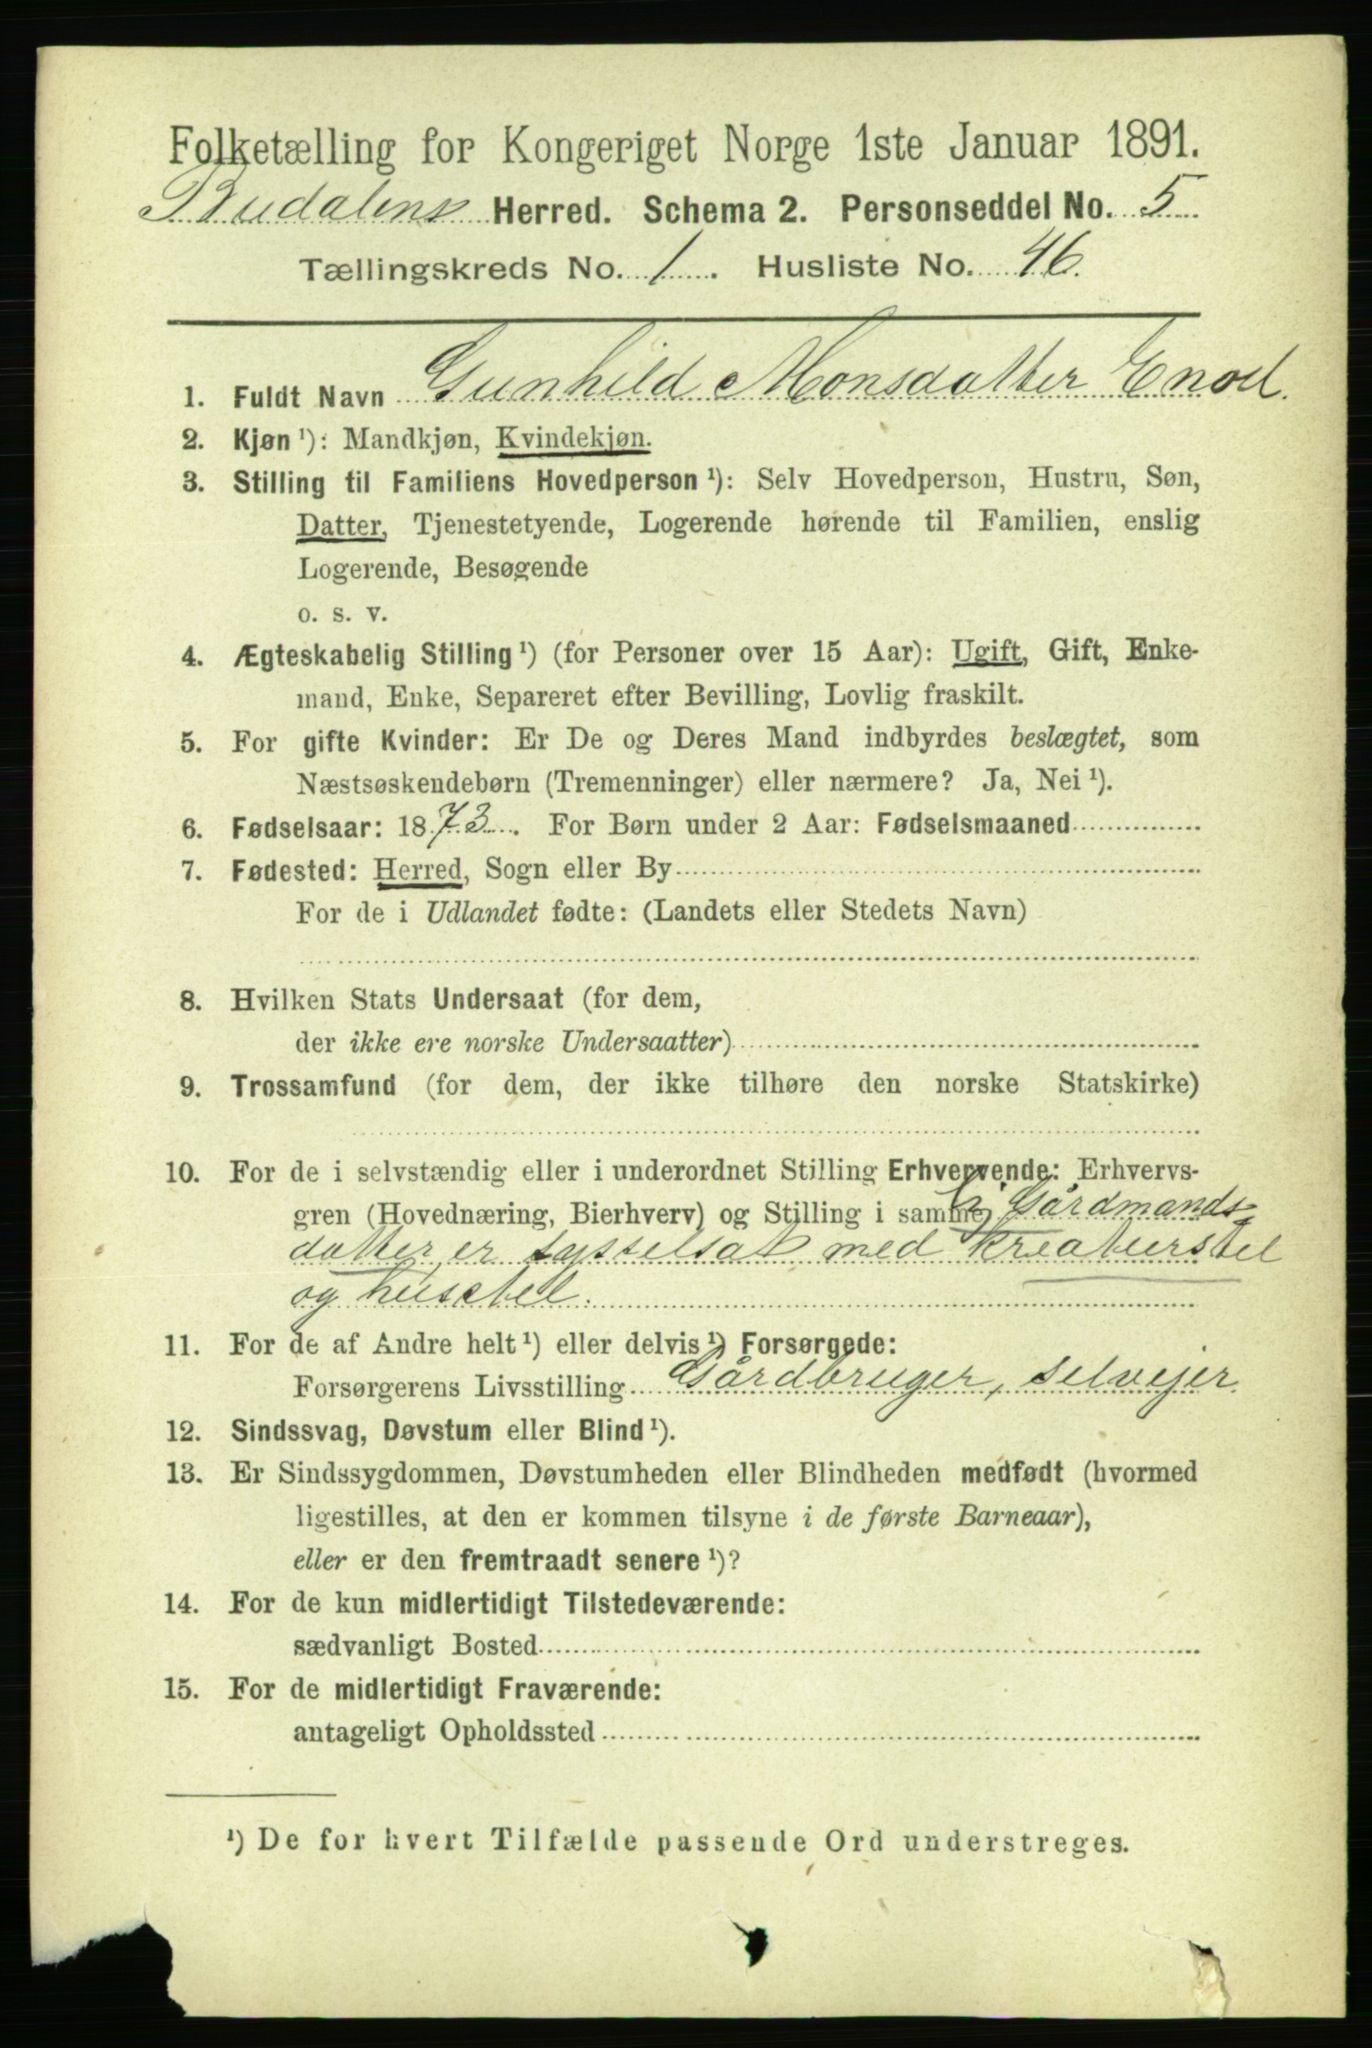 Folketælling for Kongeriget Norge 1ste Januar 1891.
Budalens Herred. Schema 2. Personseddel No. 5
Tællingskreds No. 1. Husliste No. 46.
1. Fuldt Navn Gunhild Monsdatter Enod.
2. Kjøn ¹): Mandkjøn, Kvindekjøn.
3. Stilling til Familiens Hovedperson ¹): Selv Hovedperson, Hustru, Søn,
Datter, Tjenestetyende, Logerende hørende til Familien, enslig
Logerende, Besøgende
o. s. v.
4. Ægteskabelig Stilling ¹) (for Personer over 15 Aar): Ugift, Gift, Enke-
mand, Enke, Separeret efter Bevilling, Lovlig fraskilt.
5. For gifte Kvinder: Er De og Deres Mand indbyrdes beslægtet, som
Næstsøskendebørn (Tremenninger) eller nærmere? Ja, Nei ¹).
6. Fødselsaar: 1873. For Børn under 2 Aar: Fødselsmaaned
7. Fødested: Herred, Sogn eller By
For de i Udlandet fødte: (Landets eller Stedets Navn)
8. Hvilken Stats Undersaat (for dem,
der ikke ere norske Undersaatter)
9. Trossamfund (for dem, der ikke tilhøre den norske Statskirke)
10. For de i selvstændig eller i underordnet Stilling Erhvervende: Erhvervs-
gren (Hovednæring, Bierhverv) og Stilling i samme Gårdmands-
datter, er sysselsat med kreaturstel
og husstel.
11. For de af Andre helt ¹) eller delvis ¹) Forsørgede:
Forsørgerens Livsstilling Gårdbruger, selvejer.
12. Sindssvag, Døvstum eller Blind ¹).
13. Er Sindssygdommen, Døvstumheden eller Blindheden medfødt (hvormed
ligestilles, at den er kommen tilsyne i de første Barneaar),
eller er den fremtraadt senere ¹)?
14. For de kun midlertidigt Tilstedeværende:
sædvanligt Bosted
15. For de midlertidigt Fraværende:
antageligt Opholdssted
¹) De for hvert Tilfælde passende Ord understreges.